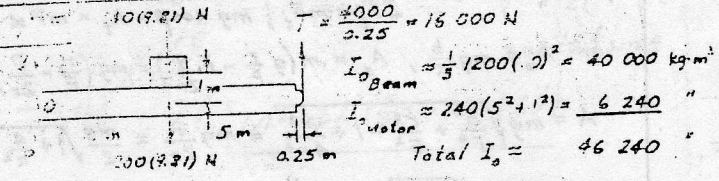 40(9.81) N
T = 4000/0.25 = 16 000 N
I₀ Beam ≈ 1/3 1200( .0)² = 40 000 kg·m²
1 m
I₀ Motor ≈ 240(5² + 1²) = 6 240 "
5 m
00(9.81) N
0.25 m
Total I₀ ≈ 46 240 "